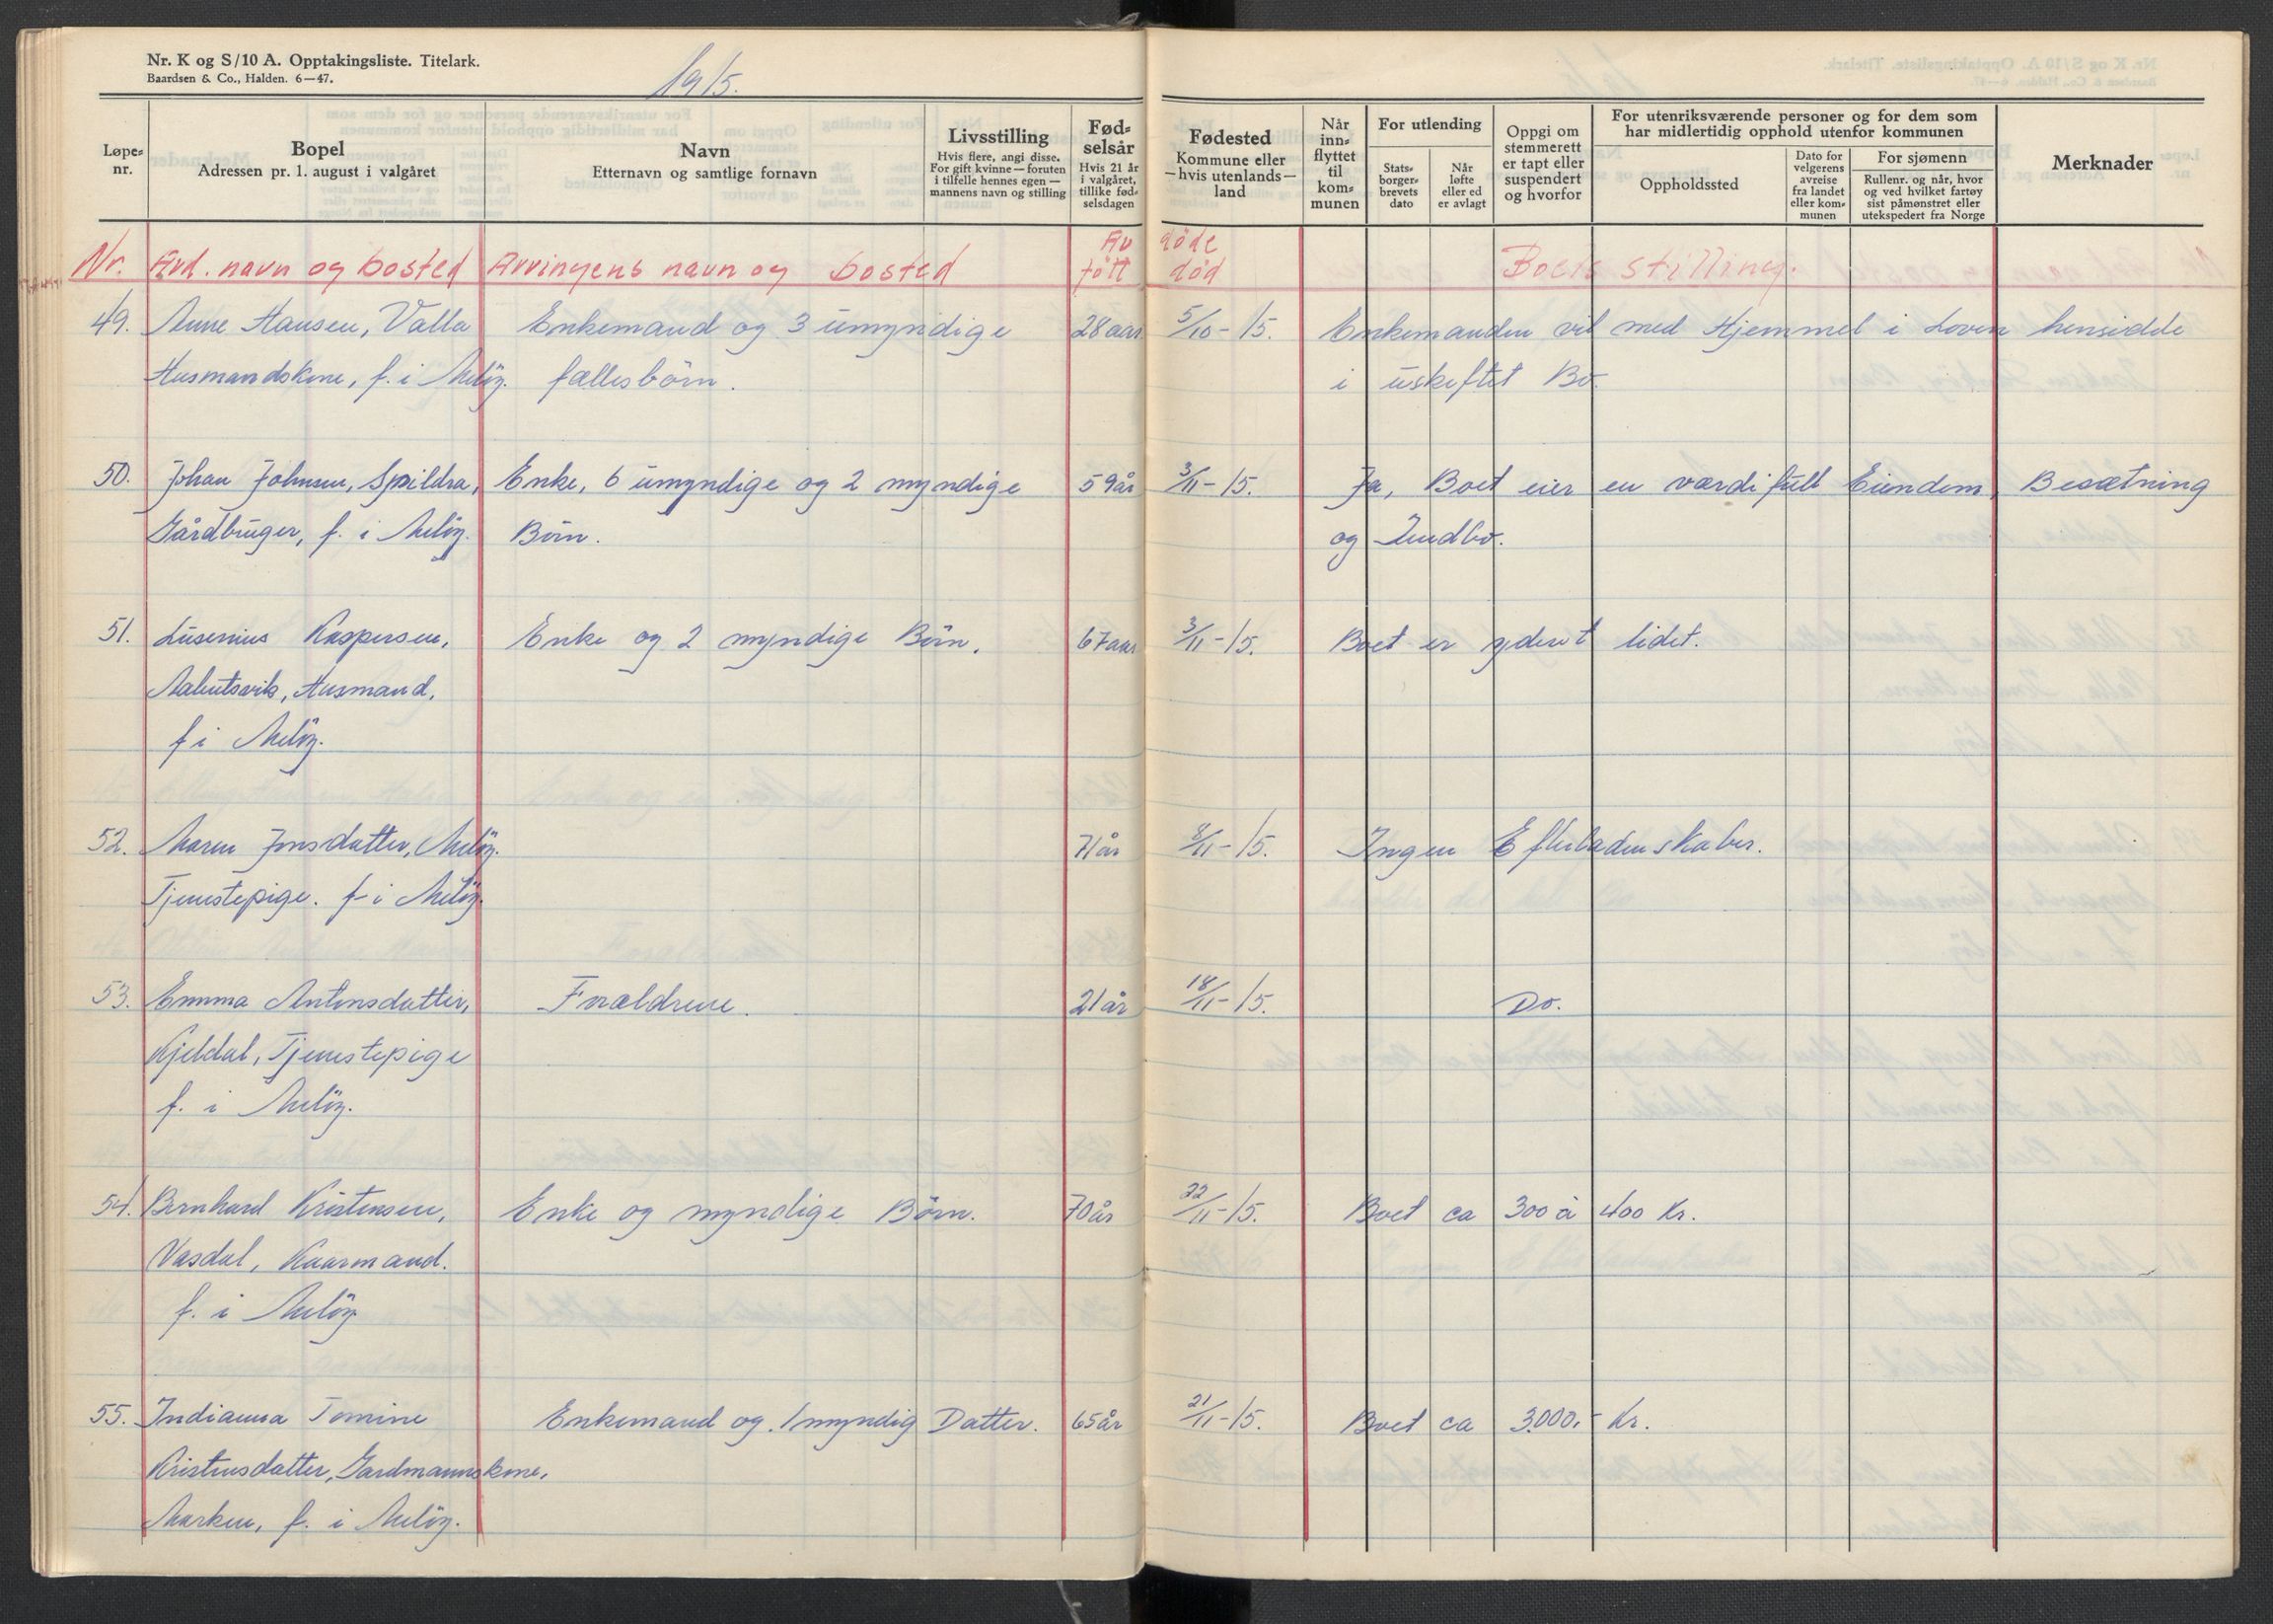 Nr. K og S/10 A. Opptakingsliste. Titelark.
Baardsen & Co., Halden. 6—47.
1915.
Løpe-
nr.
Bopel
Adressen pr. 1. august i valgåret
Navn
Etternavn og samtlige fornavn
Livsstilling
Hvis flere, angi disse.
For gift kvinne — foruten
i tilfelle hennes egen —
mannens navn og stilling
Fød-
selsår
Hvis 21 år
i valgåret,
tillike fød-
selsdagen
Fødested
Kommune eller
— hvis utenlands —
land
Når
inn-
flyttet
til
kom-
munen
For utlending
Stats-
borger-
brevets
dato
Når
løfte
eller ed
er avlagt
Oppgi om
stemmerett
er tapt eller
suspendert
og hvorfor
For utenriksværende personer og for dem som
har midlertidig opphold utenfor kommunen
Oppholdssted
Dato for
velgerens
avreise
fra landet
eller kom-
munen
For sjømenn
Rullenr. og når, hvor
og ved hvilket fartøy
sist påmønstret eller
utekspedert fra Norge
Merknader
Nr. Avd. navn og bosted Arvingens navn og bosted Av døde Boets stilling.
født død
49. Anne Hansen, Valla Enkemand og 3 umyndige 28 aar 5/10-15. Enkemanden vil med Hjemmel i Loven hensidde
Husmandskone, f. i Melöy. fællesbörn. i uskiftet Bo.
50. Johan Johnsen, Spildra, Enke, 6 umyndige og 2 myndige 59 år 3/11-15. Ja, Boet eier en værdifull Eiendom, Besætning
Gårdbruger, f. i Melöy. Börn. og Indbo.
51. Lusenius Kaspersen, Enke og 2 myndige Börn. 67 aar 3/11-15. Boet er yderst lidet.
Husmand,
f i Melöy.
52. Maren Jonsdatter, Melöy. 71 år 8/11-15. Ingen Efterladenskaber.
Tjenestepige. f i Melöy.
53. Emma Antonsdatter, Forældrene. 21 år 18/11-15. Do.
Kjeldal, Tjenestepige
f. i Melöy.
54. Bernhard Kristensen, Enke og myndige Börn. 70 år 22/11-15. Boet ca 300 à 400 Kr.
Vasdal, Kaarmand.
f. i Melöy
55. Indianna Tomine Enkemand og 1 myndig Datter. 65 år 21/11-15. Boet ca 3.000,- Kr.
Kristensdatter, Gardmannskone,
Marken, f. i Melöy.